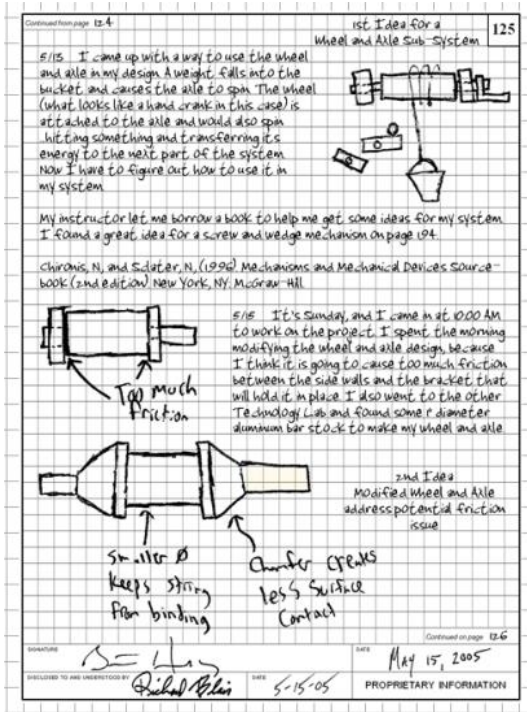 Continued from page 124
1st Idea for a
Wheel and Axle Sub-System
125
5/13 I came up with a way to use the wheel
and axle in my design. A weight falls into the
bucket and causes the axle to spin. The wheel
(what looks like a hand crank in this case) is
attached to the axle and would also spin
hitting something and transferring its
energy to the next part of the system.
Now I have to figure out how to use it in
my system
My instructor let me borrow a book to help me get some ideas for my system.
I found a great idea for a screw and wedge mechanism on page 194.
Chironis, N, and Sclater, N, (1996) Mechanisms and Mechanical Devices Source-
book (2nd edition) New York, NY: McGraw-Hill
5/15 It's Sunday, and I came in at 10:00 AM
to work on the project. I spent the morning
modifying the wheel and axle design, because
I think it is going to cause too much friction
between the side walls and the bracket that
will hold it in place. I also went to the other
Technology Lab and found some diameter
aluminum bar stock to make my wheel and axle.
Too much
friction
2nd Idea
Modified Wheel and Axle
address potential friction
issue
Smaller Ø
keeps string
from binding
Chamfer creates
less surface
contact
Continued on page 126
SIGNATURE
DATE
May 15, 2005
DISCLOSED TO AND UNDERSTOOD BY
Richard Blais
DATE
5-15-05
PROPRIETARY INFORMATION